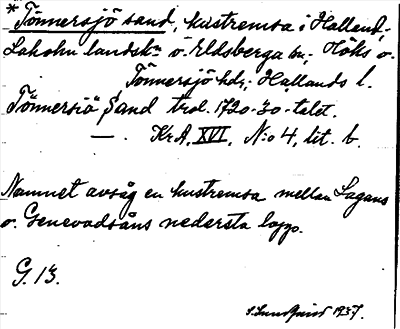 * Tönnersjö sand, kustremsa i Halland,
Laholm landsk:n o. Eldsberga sn, Höks o.
Tönnersjö hdr, Hallands l.
Tönnersiö Sand trol. 1720-30-talet.
— KrA, XVI, N:o 4, lit. b.
Namnet avsåg en kustremsa mellan Lagans
o. Genevadsåns nedersta lopp.
G. 13.
S. Lundquist 1937.